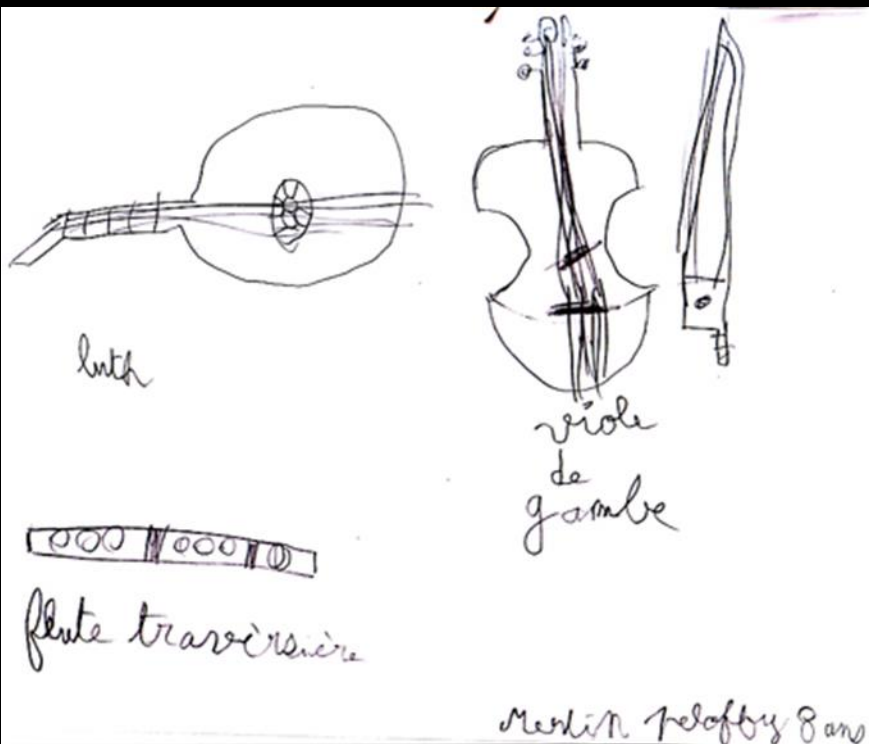 luth
viole
de
gambe
flute travèrsière
Merlin 8 ans